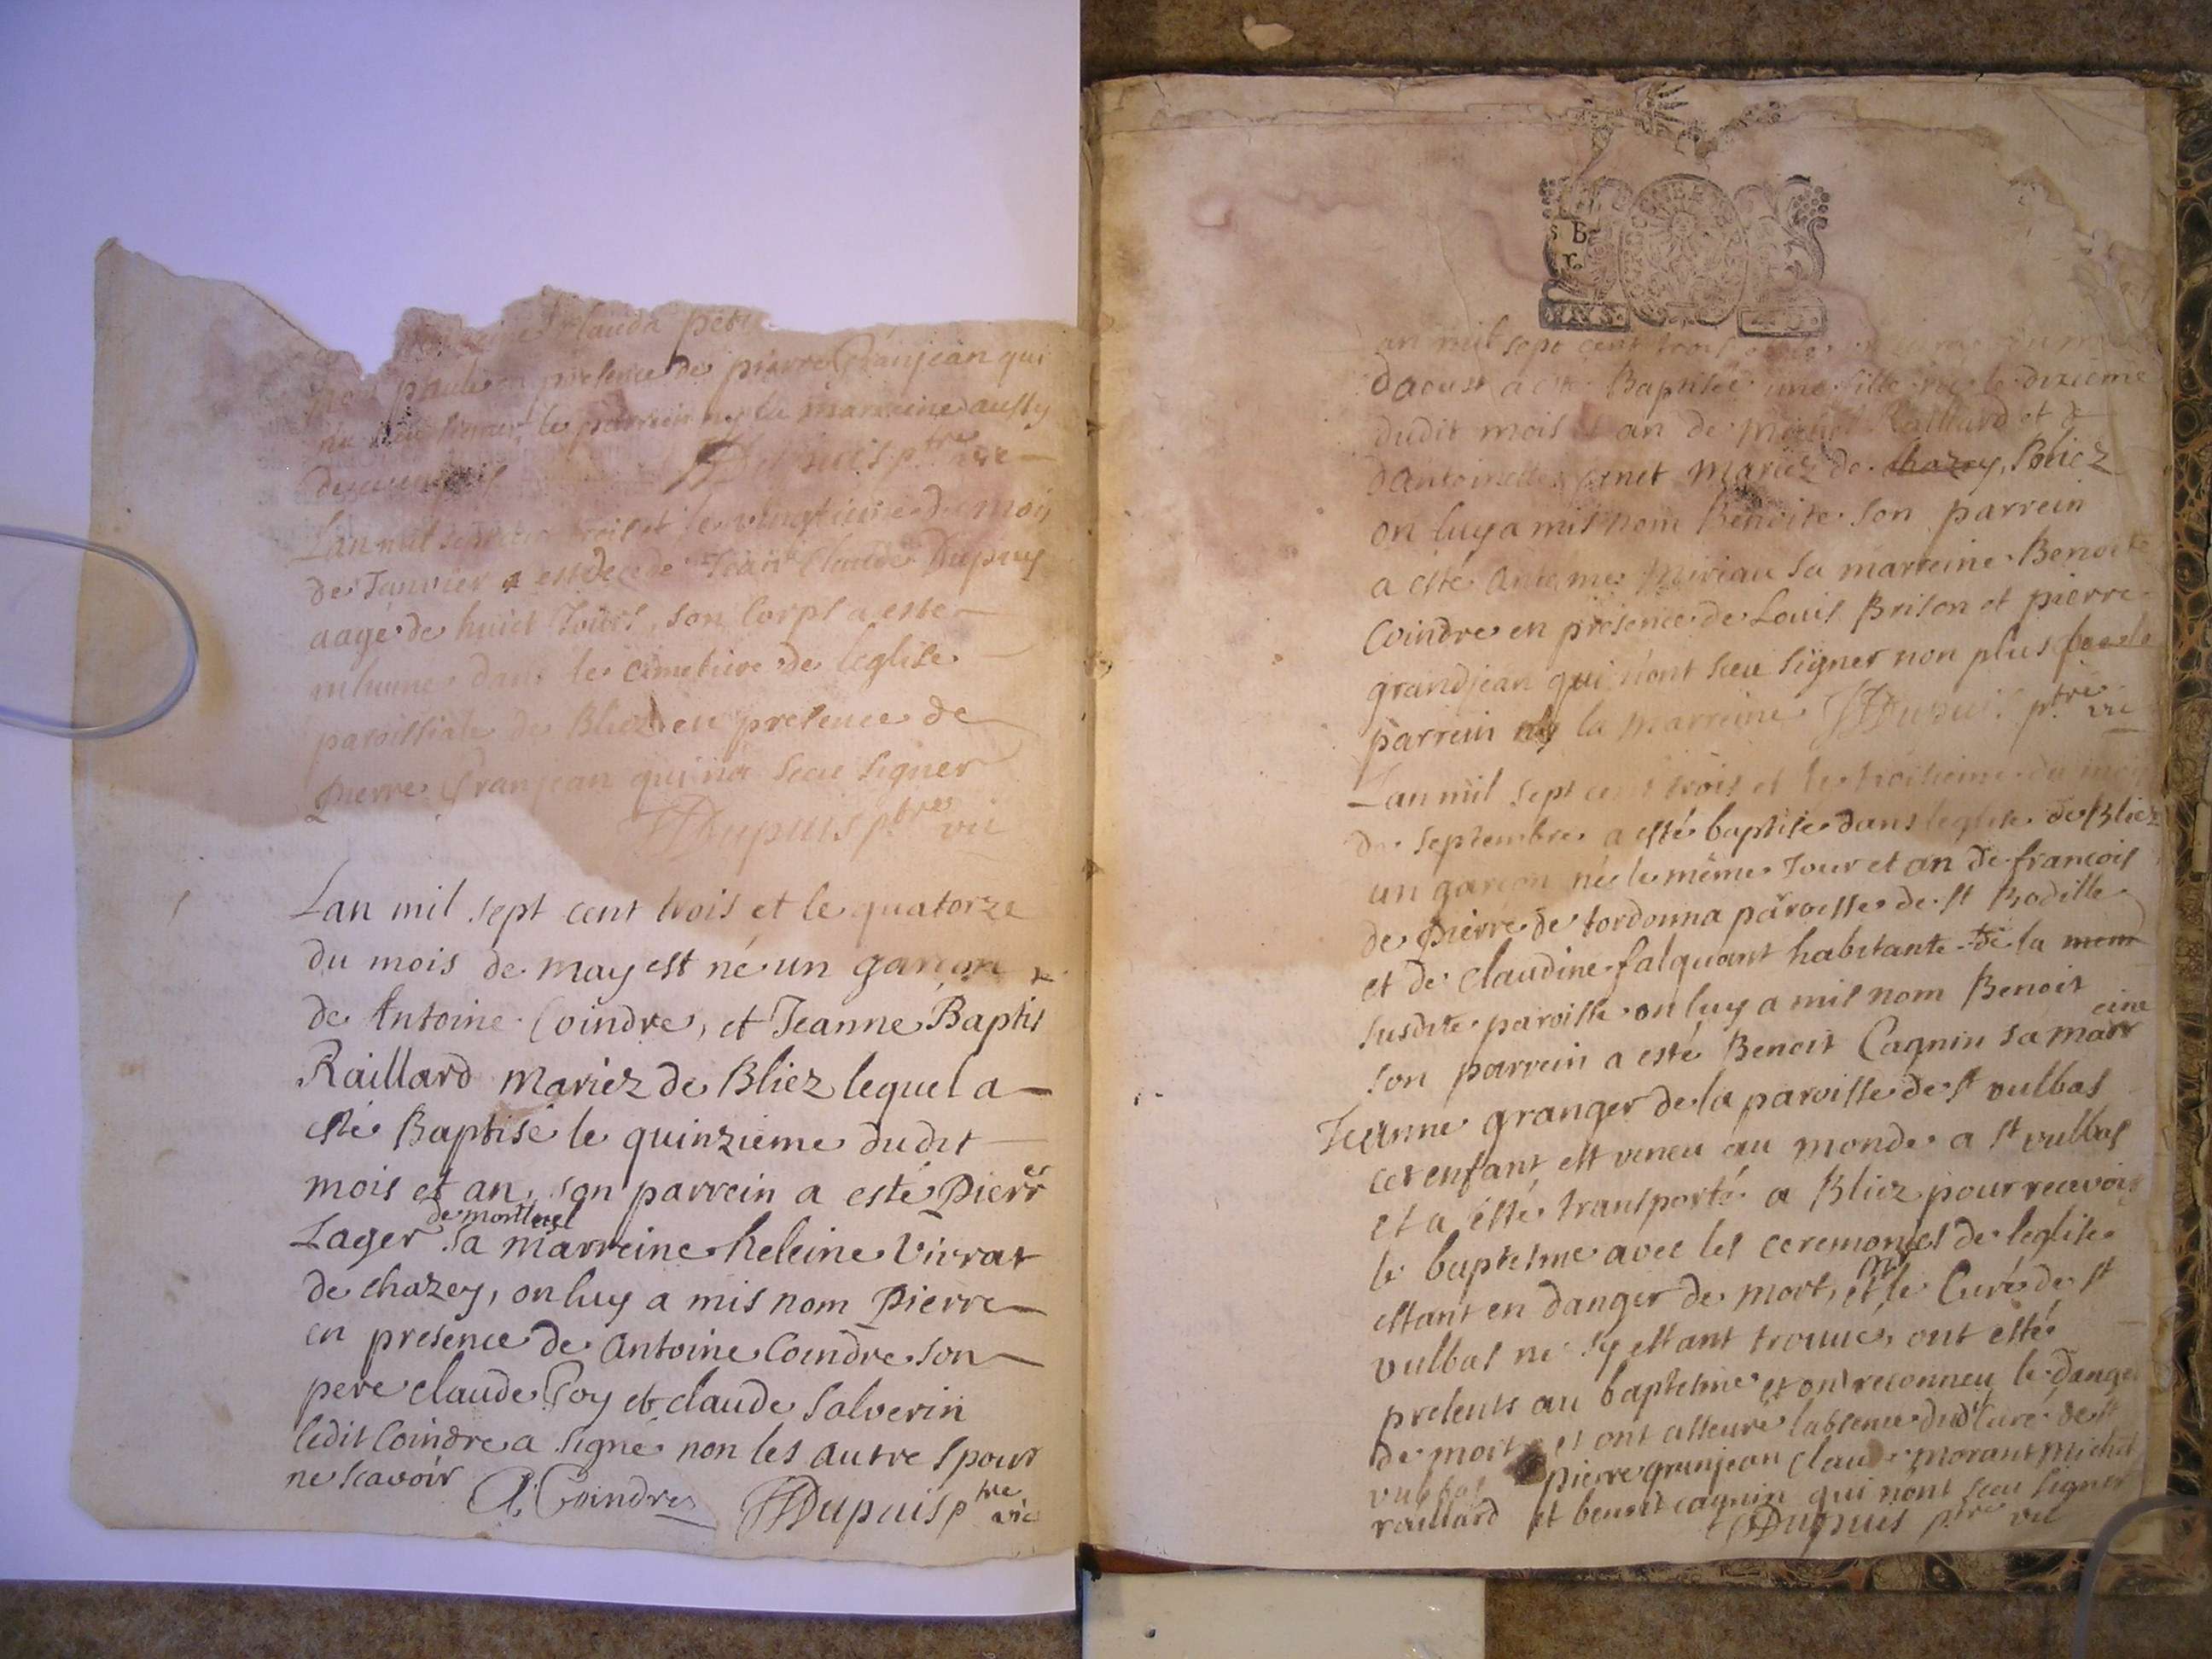 Clauda
presence de pierre Granjean qui
le parrein ny la marreine aussy
Dupuis ptre vic
Lan mil sept cent trois et le vingtieme du mois
de Janvier est decede Jean Claude Dupuy
aagé de huict Jours, son corps a este
inhumé dans le cimetiere de leglise
paroissiale de Bliez en presence de
pierre Granjean qui na sceu signer
Dupuis ptre vic
Lan mil sept cent trois et le quatorze
du mois de may est né un garçon
de Antoine Coindre, et Jeanne Baptis
Raillard mariez de Bliez lequel a
esté Baptisé le quinzieme dudit
mois et an, son parrein a esté Pierre
Lager de montluel sa marreine heleine Vivrat
de chazey, on luy a mis nom Pierre
en presence de Antoine Coindre son
pere claude Goy et claude Salverin
ledit Coindre a signé non les autres pour
ne scavoir A. Coindre Dupuis ptre vic
an mil sept cent trois
daoust a esté Baptisée une fille née le dixieme
dudit mois et an de Michel Raillard et
dantoinette mariez de chazey, Bliez
on luy a mis nom Benoite son parrein
a esté Antoine Miriau sa marreine Benoite
Coindre en presence de Louis Brison et pierre
grandjean qui n'ont sceu signer non plus que le
parrein ny la marreine Dupuis ptre vic
Lan mil sept cent trois et le troisieme du mois
de septembre a esté baptisé dans leglise de Bliez
un garçon né le même Jour et an de francois
de pierre de tordonna paroisse de st Bodille
et de claudine falquant habitante de la mem
susdite paroisse on luy a mis nom Benoit
son parrein a esté Benoit Cagnin sa marreine
Jeanne granger de la paroisse de st vulbas
cet enfant est veneu au monde a st vulbas
et a esté transporté a Bliez pour recevoir
le baptesme avec les ceremonies de leglise
estant en danger de mort, et le Curé de st
vulbas ne sy estant trouué, ont esté
presents au baptesme et ont reconneu le danger
de mort et ont asseuré labsence dudt Curé de st
vulbas pierre granjean claude morant michel
raillard et benoit cagnin qui n'ont sceu signer
Dupuis ptre vic